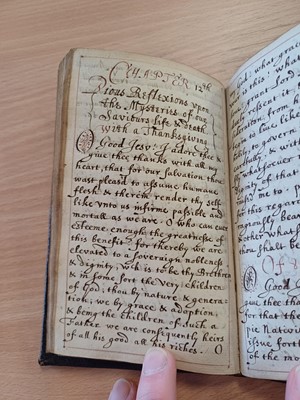 CHAPTER 12th
Pious Reflexions upon
the Mysteries of our
Saviours life & Death
with a Thanksgiving
O Good Jesu, I adore thee &
giue thee thanks with all my
heart, that for our Saluation thou
wast pleasd to assume humane
flesh, & therein render thy self
like vnto us infirme passible and
mortall as we are. O who can ever
esteeme enough the greatnesse of
this benefit? for thereby we are
elevated to a Soveraign noblenesse
& dignity, wch is to be thy Brethren
& in some sort the very children
of God; thou by nature & genera-
tion; we by grace & adoption,
& being the Children of such a
Father we are consequently heirs
of all his good all his riches. O
God, what
what
this lord
sent it,
from
like
to govern
& with
whatsoever
dignity of that
me to
for this
who can
what
thou shalt be
Good
Nativi
issue forth
of the